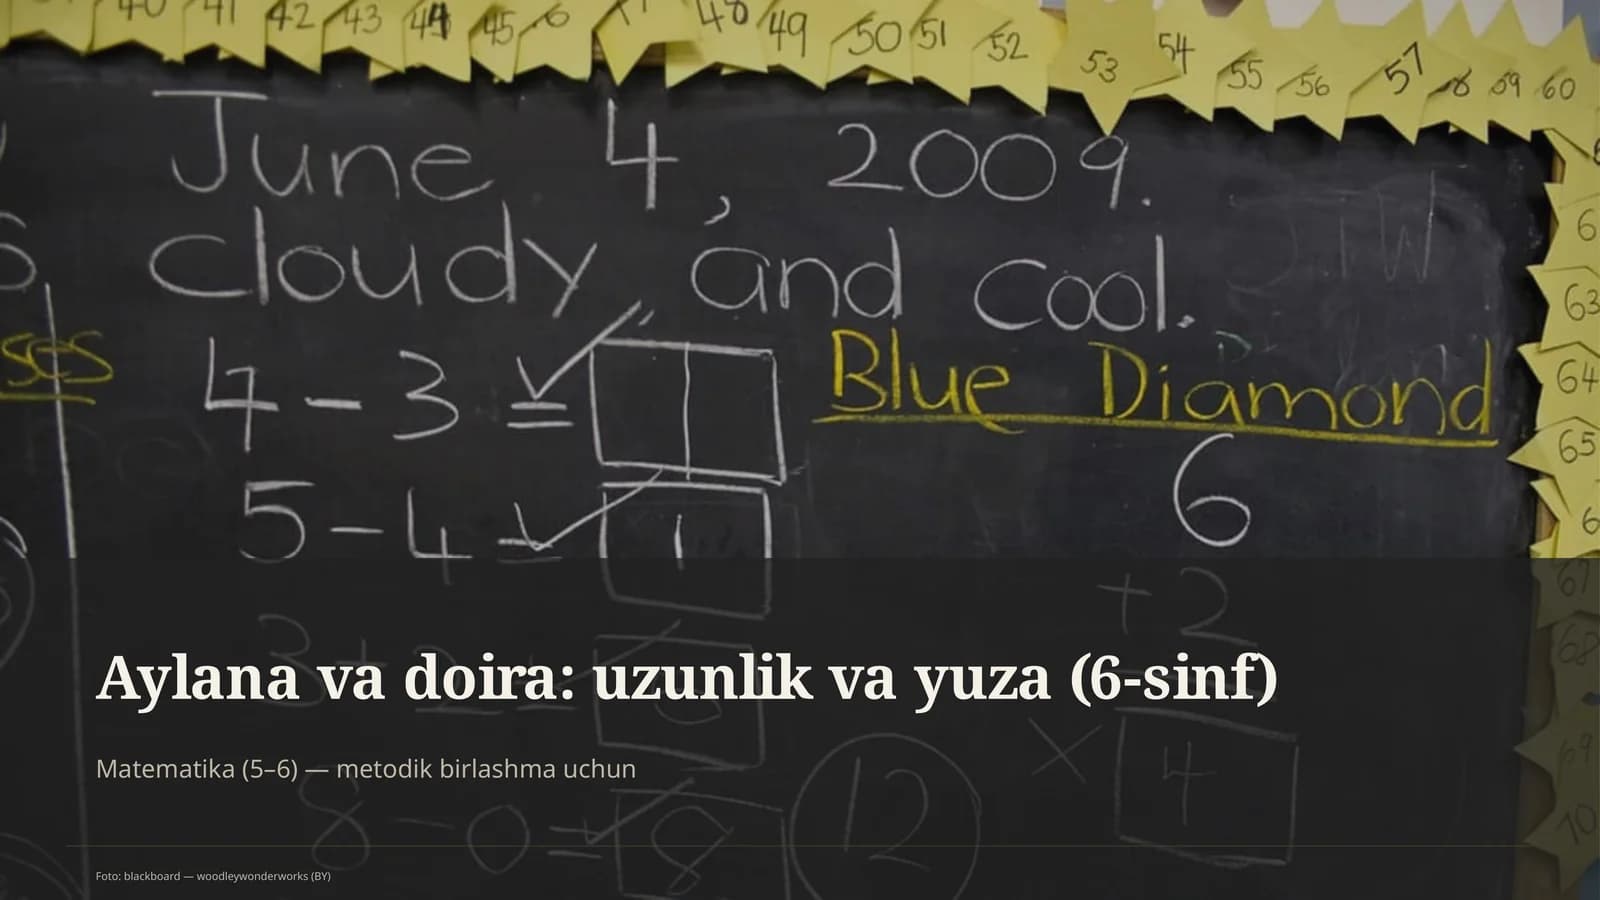 40 41 42 43 44 45 48 49 50 51 52 53 54 55 56 57 59 60
June 4, 2009.
cloudy and cool.
63
ses
4 - 3 = 1
Blue Diamond
64
5 - 4 = 1
6
65
+ 2
67
68
Aylana va doira: uzunlik va yuza (6-sinf)
× 4
69
Matematika (5–6) — metodik birlashma uchun
8 - 0 = 8
12
70
Foto: blackboard — woodleywonderworks (BY)